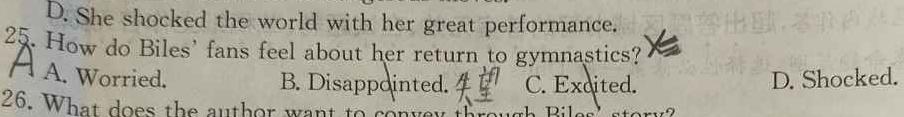 D. She shocked the world with her great performance.
25. How do Biles' fans feel about her return to gymnastics?
A A. Worried. B. Disappointed. 失望 C. Excited. D. Shocked.
26. What does the author want to convey through Biles' story?